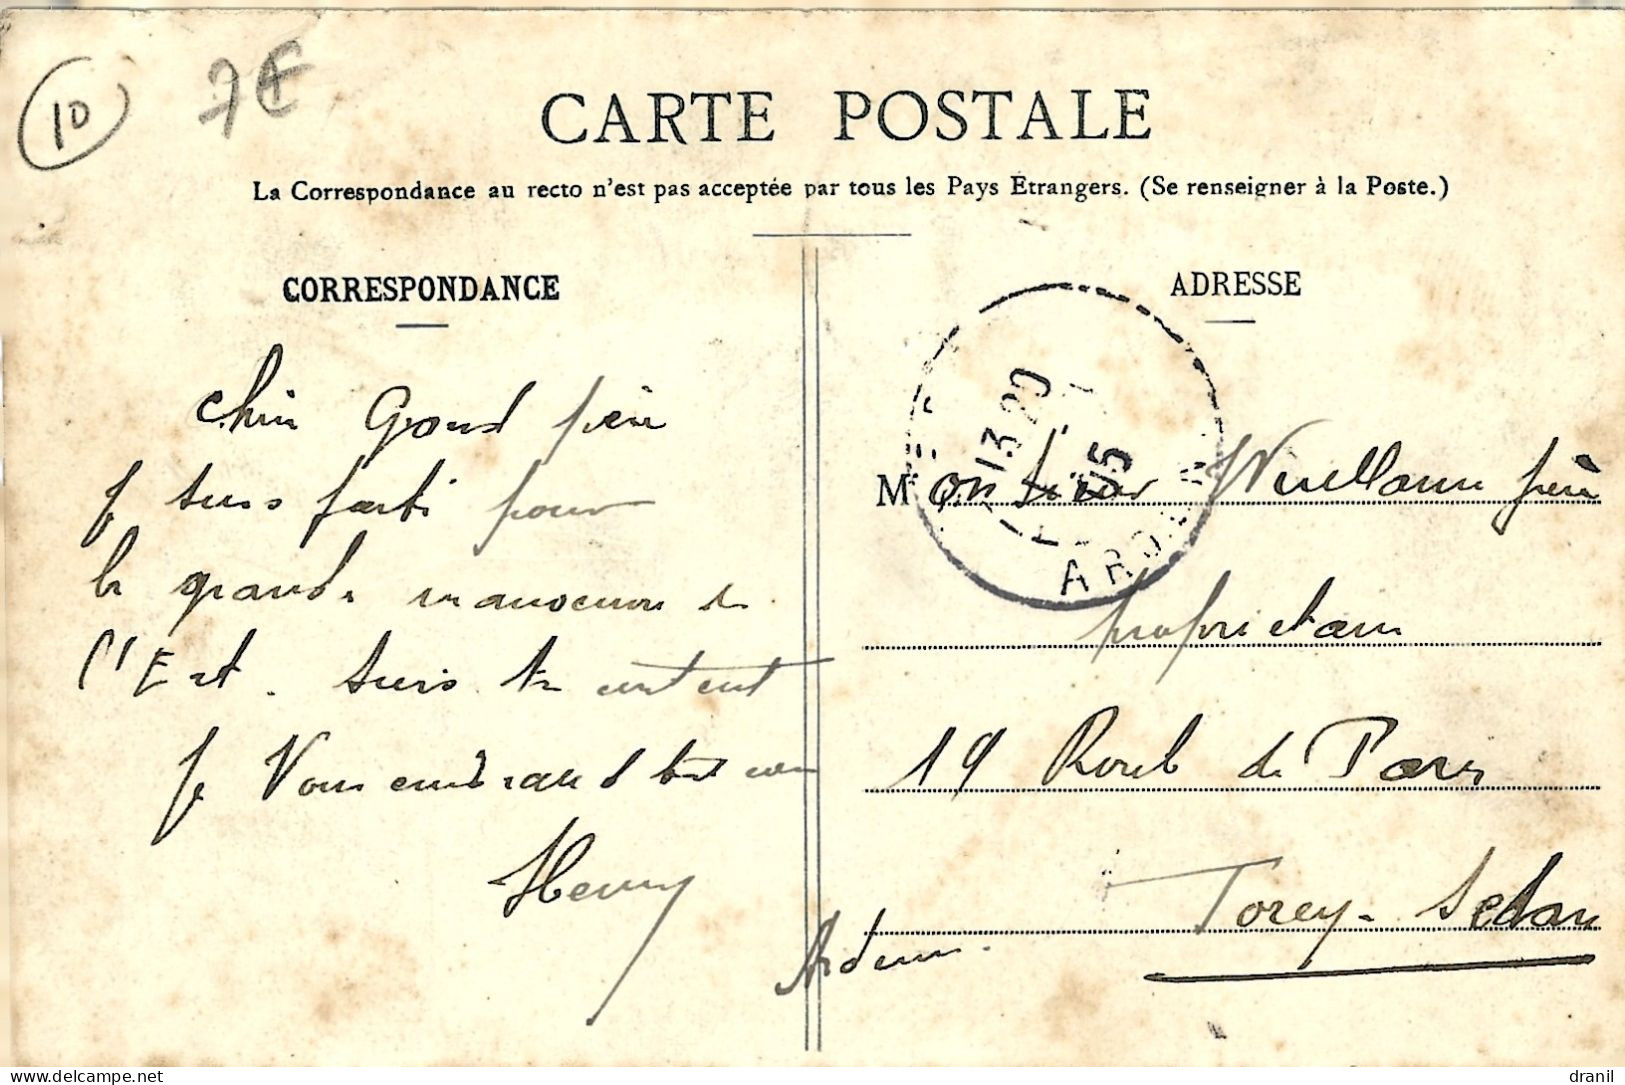 10
7€
CARTE POSTALE
La Correspondance au recto n'est pas acceptée par tous les Pays Etrangers. (Se renseigner à la Poste.)
CORRESPONDANCE
Cher Grand père
Je suis parti pour
les grandes manoeuvres de
l'Est. Suis très content
Je vous embrasse
Henry
ADRESSE
13 20
05
ARD
Monsieur père
propriétaire
19 Route de Paris
Torcy-Sedan
Ardennes.
delcampe.net
dranil